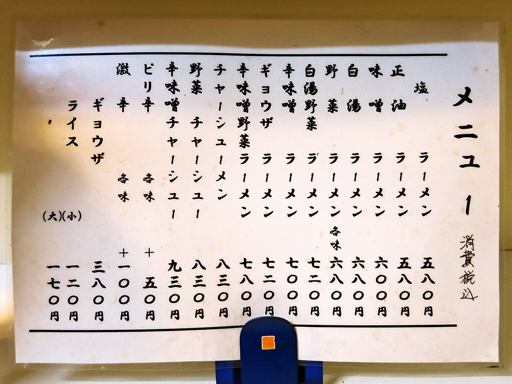 メニュー 消費税込
塩 ラーメン 五八〇円
正油 ラーメン 五八〇円
味噌 ラーメン 六〇〇円
白湯 ラーメン 六八〇円
野菜 ラーメン 各味 六八〇円
白湯野菜 ラーメン 七二〇円
辛味噌 ラーメン 七〇〇円
ギョウザ ラーメン 七二〇円
辛味噌野菜ラーメン 七八〇円
チャーシューメン 八三〇円
野菜チャーシュー 八三〇円
辛味噌チャーシュー 九三〇円
ピリ辛 各味 +五〇円
激辛 各味 +一〇〇円
ギョウザ 三八〇円
ライス (小) 一二〇円
〃 (大) 一七〇円